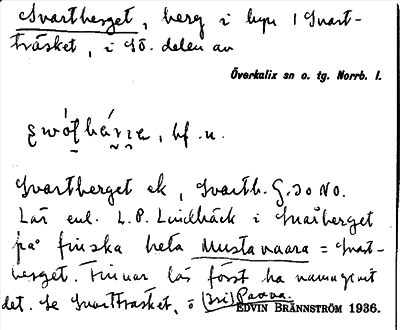 Svartberget, berg i byn i Svart-
träsket, i SÖ. delen av
Överkalix sn o. tg. Norrb. l.
bf. n.
Svartberget ek, Svartb. G. 30 NO.
Lär enl. L.P. Lindbäck i Snaiberget
på finska heta Mustavaara = Svart-
berget. Finnar lär först ha namngivit
det. Se Svartträsket, ö
EDVIN BRÄNNSTRÖM 1936.